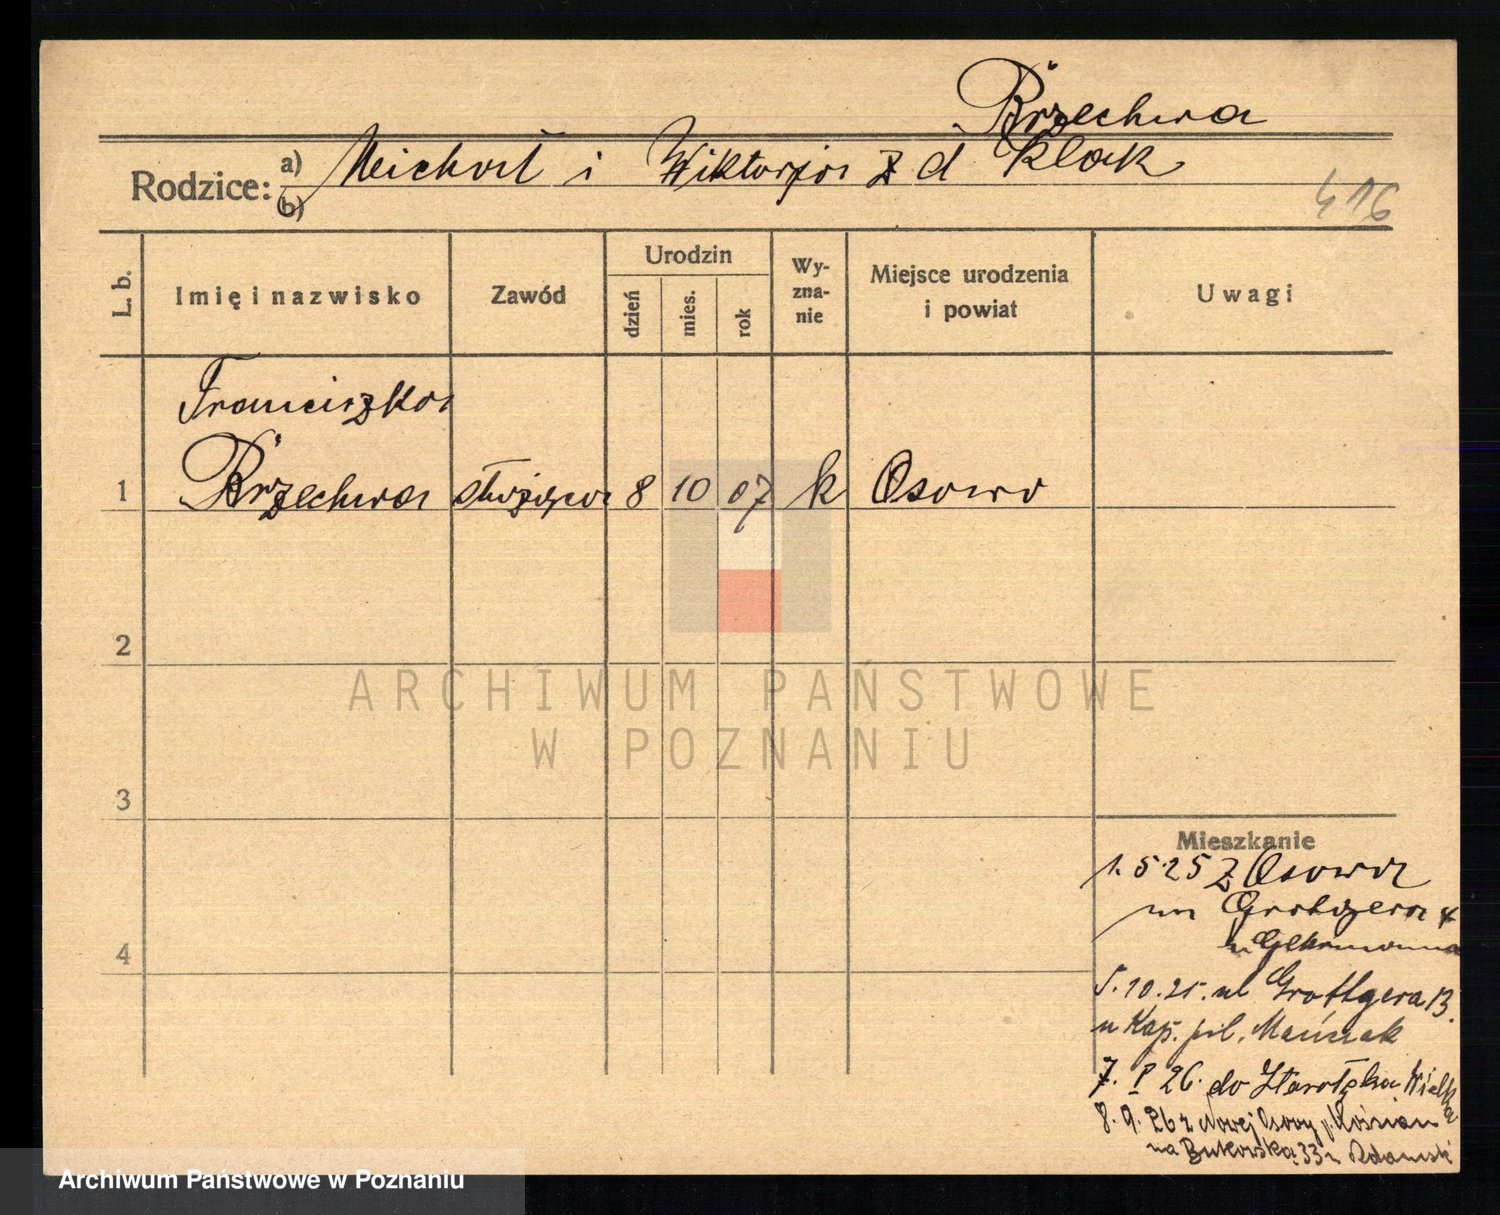 Brzechwa
Rodzice: a) Michał i Wiktorja z d Klak
b)
416
L. b.
Imię i nazwisko
Zawód
Urodzin
dzień
mies.
rok
Wy-
zna-
nie
Miejsce urodzenia
i powiat
Uwagi
Franciszka
1 Brzechwa służąca 8 10 07 k Osowo
2
3
4
ARCHIWUM PAŃSTWOWE
W POZNANIU
Mieszkanie
1.5.25 z Osowa
na Grotgera 4
u
5.10.25. ul Grottgera 13.
u Kap. pil. Mańczak
7. I 26. do Starołęka Wielka
8.9.26 z Nowej Osowy p. Kościan
na Bukowską 33 u Adamski
Archiwum Państwowe w Poznaniu